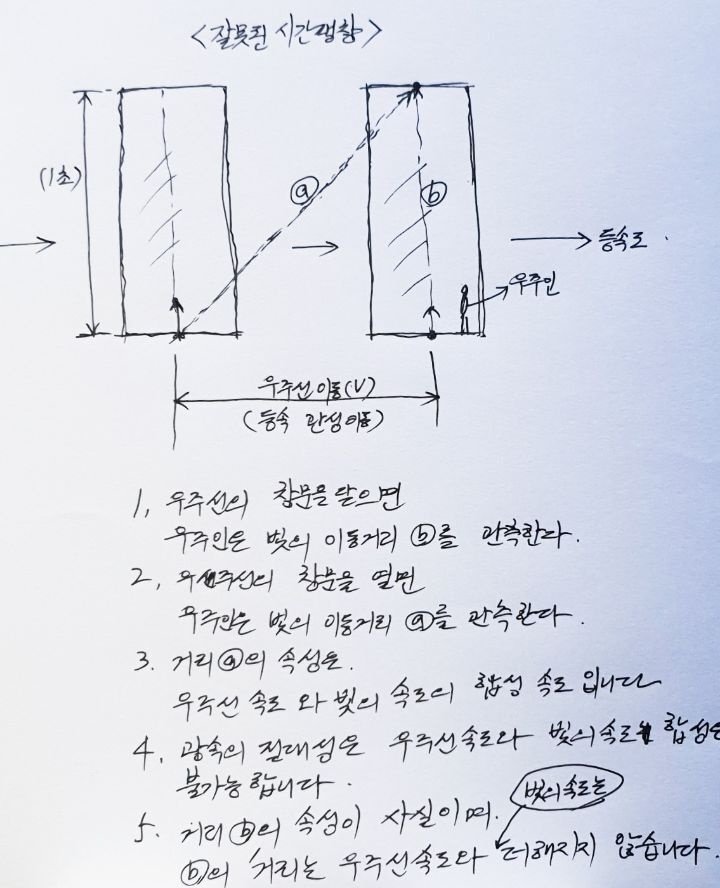 <잘못된 시간팽창>
(1초)
ⓐ
ⓑ
등속도.
우주인
우주선이동(V)
(등속 관성이동)
1, 우주선의 창문을 닫으면
우주인은 빛의 이동거리 ⓑ를 관측한다.
2, 우주선의 창문을 열면
우주인은 빛의 이동거리 ⓐ를 관측한다.
3. 거리ⓐ의 속성은.
우주선 속도와 빛의 속도의 합성 속도 입니다
4, 광속의 절대성은 우주선속도와 빛의속도 합성은
불가능합니다.
빛의속도는
5. 거리ⓑ의 속성이 사실이며.
ⓑ의 거리는 우주선속도와 더해지지 않습니다.